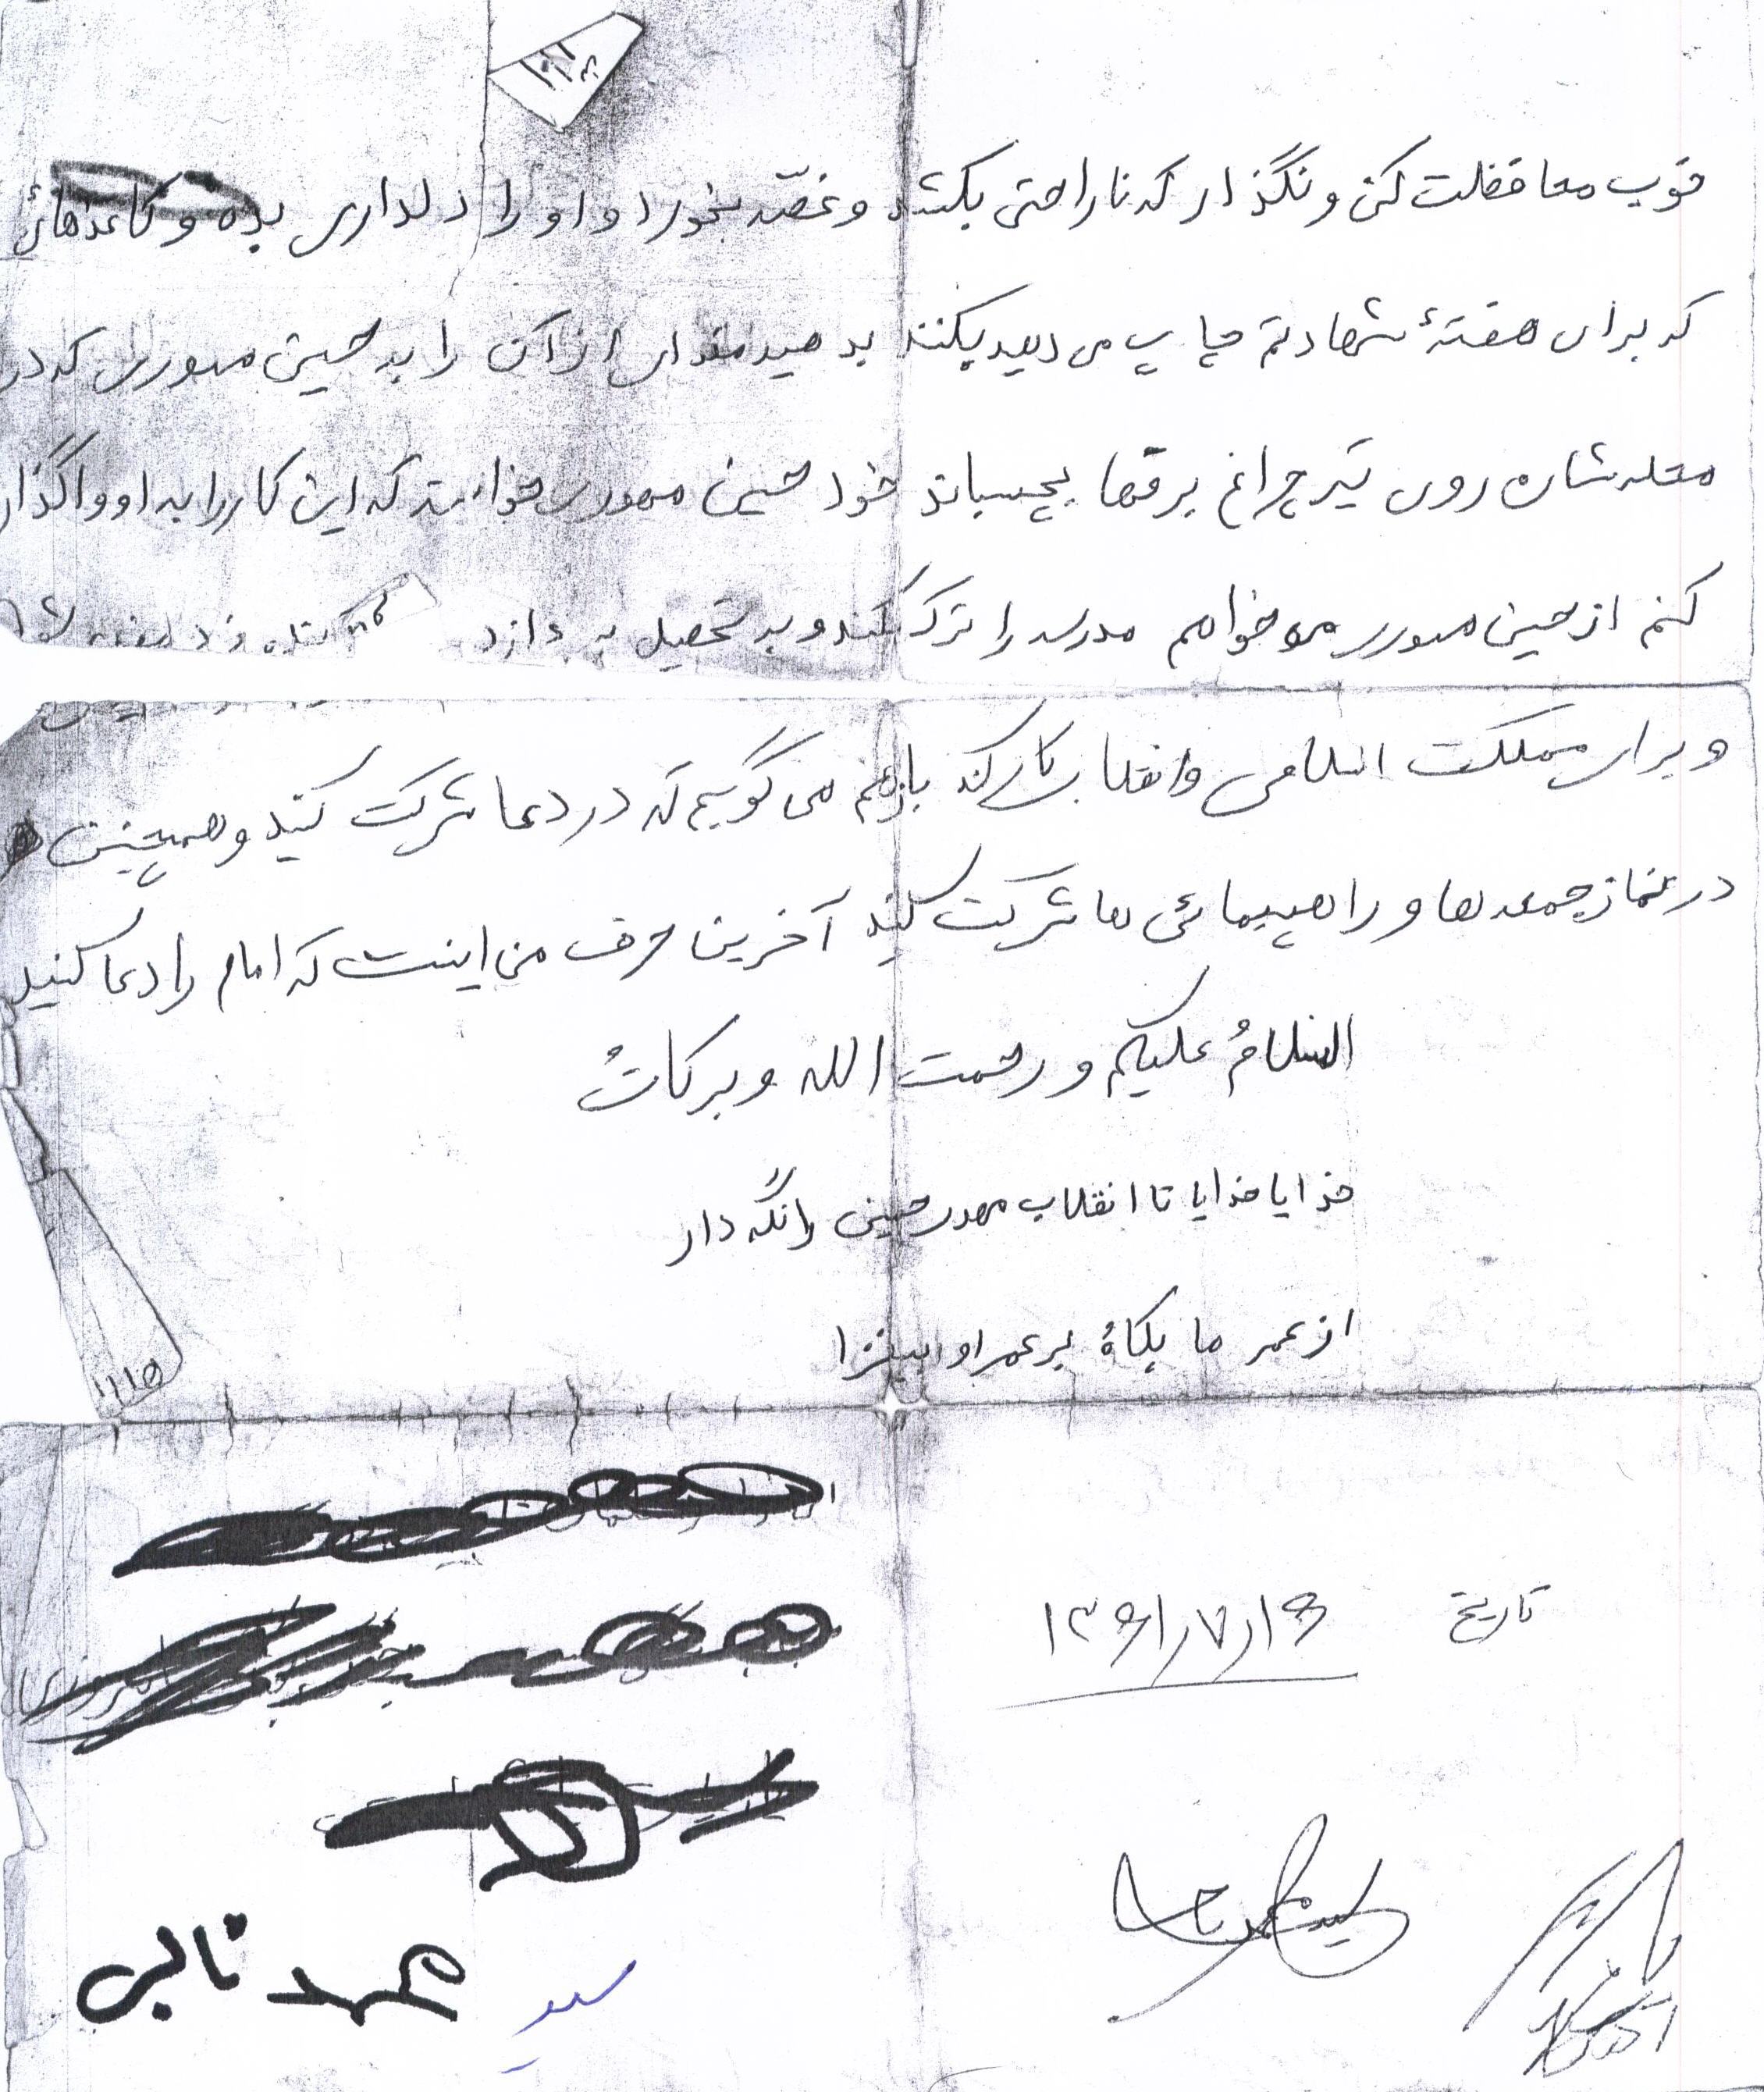 خوب محافظت کن و نگذار که ناراحتی بکشد و غصّه بخورد و او را دلداری بده و کاغذهائی
که برای هفتهٔ شهادتم چاپ می دهید بکنند بدهید مقداری از آن را به حسین مهدوی که در
محله شان روی تیر چراغ برقها بچسباند خود حسین مهدوی خواسته که این کار را به او واگذار
کنم از حسین مهدوی می خواهم مدرسه را ترک نکند و به تحصیل به پردازد
و برای مملکت اسلامی و انقلاب کار کند بازهم می گویم که در دعا شرکت کنید و همچنین
در نماز جمعه ها و راهپیمائی ها شرکت کنید آخرین حرف من اینست که امام را دعا کنید
السلامُ علیکم و رحمت الله و برکاتُ
خدایا خدایا تا انقلاب مهدی خمینی را نگه دار
از عمر ما بکاهٔ بر عمر او بیفزا
تاریخ ۱۳۶۱/۷/۱۶
سید محمد تالی